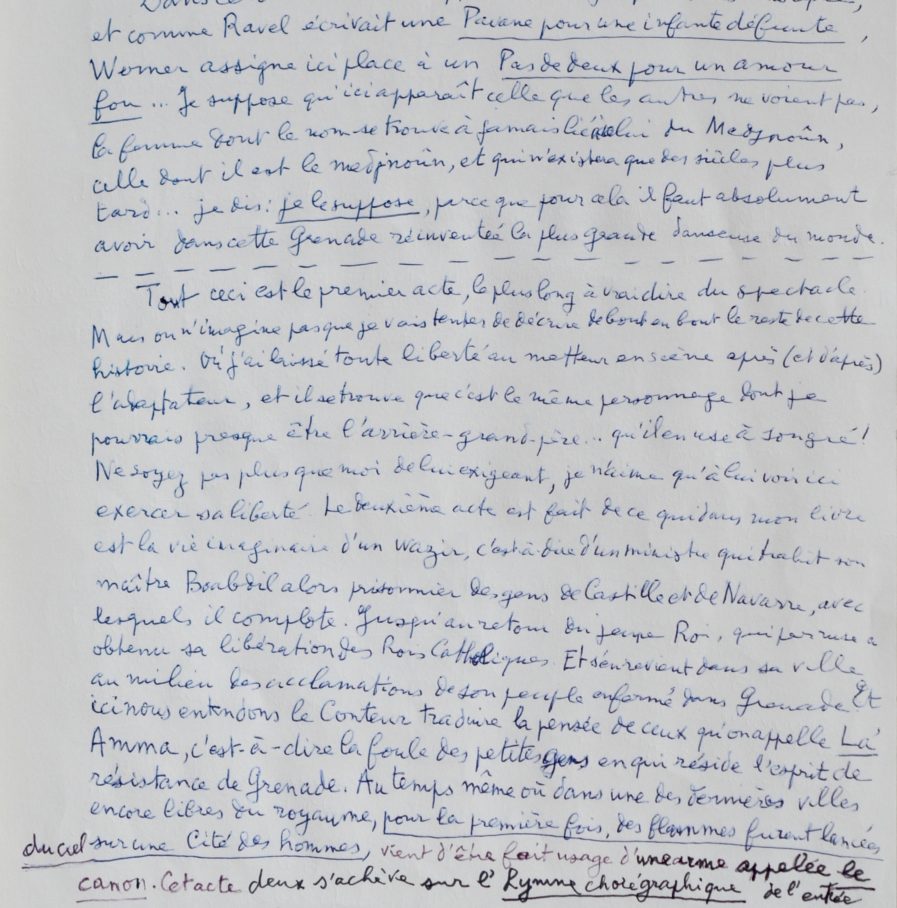 et comme Ravel écrivait une Pavane pour une infante défunte,
Werner assigne ici place à un Pas de deux pour un amour
fou ... Je suppose qu'ici apparaît celle que les autres ne voient pas,
la femme dont le nom se trouve à jamais lié à celui du Medjnoûn,
celle dont il est le medjnoûn, et qui n'existera que des siècles plus
tard ... je dis : je le suppose, parce que pour cela il faut absolument
avoir dans cette Grenade réinventée la plus grande danseuse du monde.
Tout ceci est le premier acte, le plus long à vrai dire du spectacle.
Mais on n'imagine pas que je vais tenter de décrire de bout en bout le reste de cette
histoire. Où j'ai laissé toute liberté au metteur en scène après (et d'après)
l'adaptateur, et il se trouve que c'est le même personnage dont je
pourrais presque être l'arrière-grand-père... qu'il en use à son gré !
Ne soyez pas plus que moi de lui exigeant, je n'aime qu'à lui voir ici
exercer sa liberté. Le deuxième acte est fait de ce qui dans mon livre
est la vie imaginaire d'un wazir, c'est-à-dire d'un ministre qui trahit son
maître Boabdil alors prisonnier des gens de Castille et de Navarre, avec
lesquels il complote. Jusqu'au retour du jeune Roi, qui par ruse a
obtenu sa libération des Rois Catholiques. Et s'en revient dans sa ville
au milieu des acclamations de son peuple enfermé dans Grenade. Et
ici nous entendons le Conteur traduire la pensée de ceux qu'on appelle La'
Amma, c'est-à-dire la foule des petites gens en qui réside l'esprit de
résistance de Grenade. Au temps même où dans une des dernières villes
encore libres du royaume, pour la première fois, des flammes furent lancées
du ciel sur une Cité des hommes, vient d'être fait usage d'une arme appelée le
canon. Cet acte deux s'achève sur l'Hymne chorégraphique de l'entrée